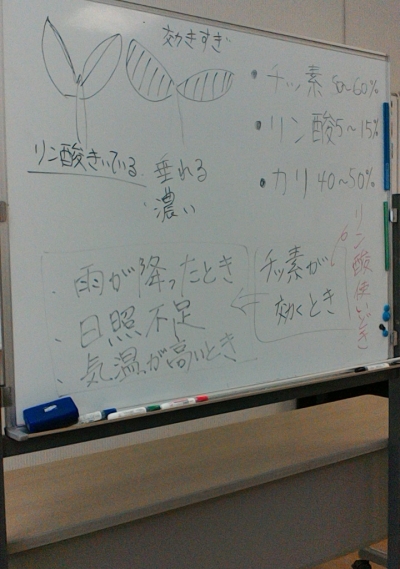 効きすぎ
リン酸きいている
垂れる
濃い
・チッ素 50〜60%
・リン酸 5〜15%
・カリ 40〜50%
・雨が降ったとき
・日照不足
・気温が高いとき
チッ素が
効くとき
リン酸使いどき